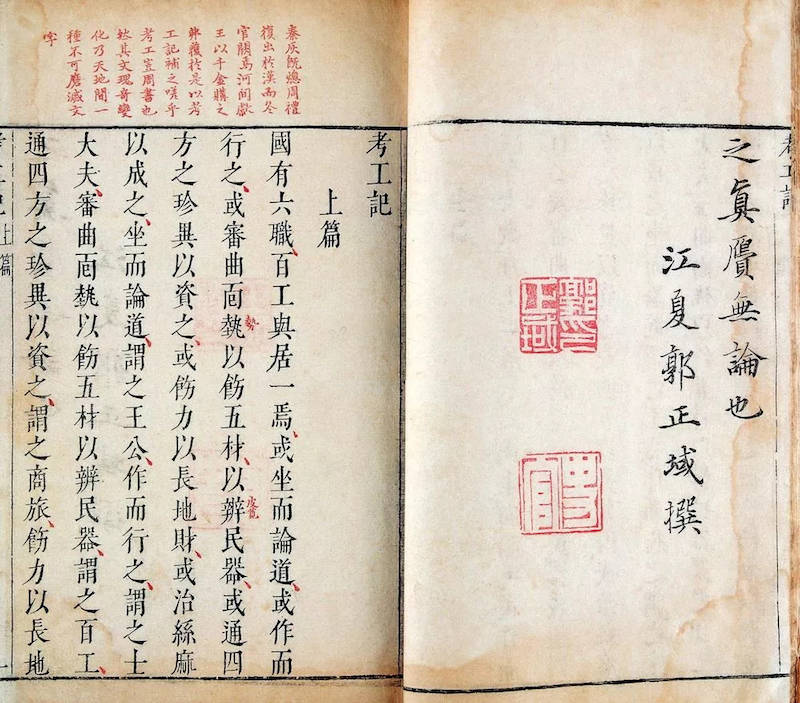 考工記
之眞贋無論也
江夏郭正域撰
秦灰既熄周禮
復出於漢而冬
官闕焉河間獻
王以千金購之
弗獲於是以考
工記補之嗟乎
考工豈周書也
然其文瑰奇變
化乃天地間一
種不可磨滅文
字
考工記
上篇
國有六職、百工與居一焉、或坐而論道、或作而
行之、或審曲面埶以飭五材、以辨民器、或通四
勢
方之珍異以資之、或飭力以長地財、或治絲麻
以成之、坐而論道、謂之王公、作而行之、謂之士
大夫、審曲面埶以飭五材以辨民器、謂之百工、
通四方之珍異以資之、謂之商旅、飭力以長地
考工記
上篇
一